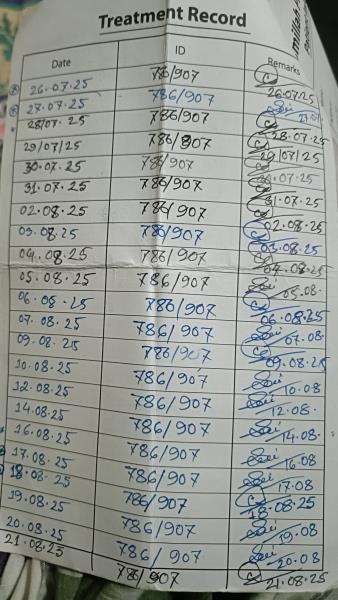 Treatment Record
Date ID Remarks
26.07.25 786/907 26.07.25
27.07.25 786/907 27.07
28/07.25 786/907 28.07.25
29/07/25 786/907 29/07/25
30.07.25 786/907 30.07.25
31.07.25 786/907 31.07.25
02.08.25 786/907 02.08.25
03.08.25 786/907 03.08.25
04.08.25 786/907 04.08.25
05.08.25 786/907 05.08.
06.08.25 786/907 06.08.25
07.08.25 786/907 07.08
09.08.25 786/907 09.08.25
10.08.25 786/907 10.08
12.08.25 786/907 12.08.
14.08.25 786/907 14.08.
16.08.25 786/907 16.08
17.08.25 786/907 17.08
18.08.25 786/907 18.08.25
19.08.25 786/907 19.08
20.08.25 786/907 20.08
21.08.25 786/907 21.08.25